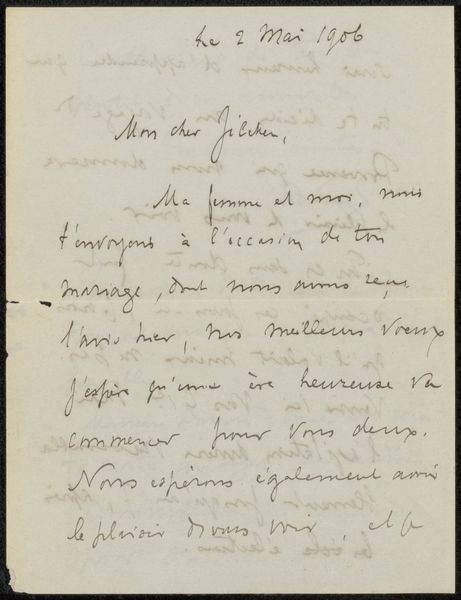 Le 2 Mai 1906
Mon cher Zilcken,
Ma femme et moi, nous
t'envoyons à l'occasion de ton
mariage, dont nous avons reçu
l'avis hier, nos meilleurs voeux
J'espère qu'une ère heureuse va
commencer pour vous deux.
Nous espérons également avoir
le plaisir de vous voir, et